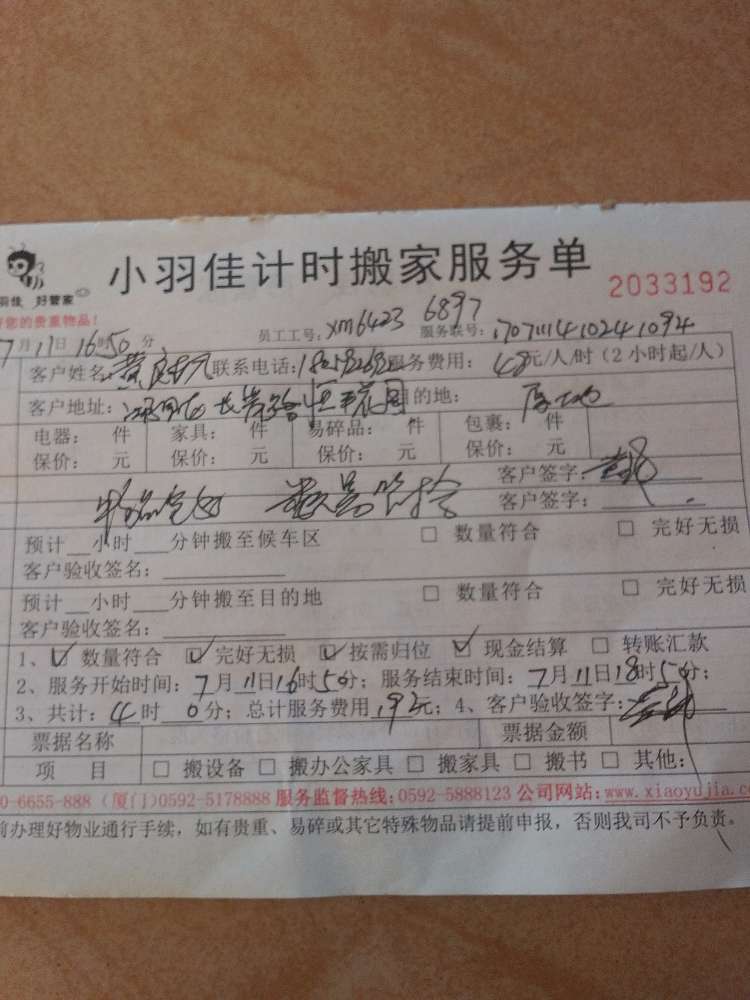 小羽佳计时搬家服务单
2033192
羽佳 好管家
您的贵重物品!
7月11日16时50分 员工工号:xm6423 6897 服务联号:170711141024 1094
客户姓名:黄 联系电话: 服务费用:48元/人/时(2小时起/人)
客户地址: 花园 目的地:原地
电器: 件 家具: 件 易碎品: 件 包裹: 件
保价: 元 保价: 元 保价: 元 保价: 元
客户签字:
客户签字:
预计__小时___分钟搬至候车区 □ 数量符合 □ 完好无损
客户验收签名:
预计__小时___分钟搬至目的地 □ 数量符合 □ 完好无损
客户验收签名:
1、☑ 数量符合 ☑ 完好无损 ☑ 按需归位 ☑ 现金结算 □ 转账汇款
2、服务开始时间:7月11日16时50分;服务结束时间:7月11日18时50分;
3、共计:4时0分;总计服务费用192元;4、客户验收签字:
票据名称 票据金额
项 目 □ 搬设备 □ 搬办公家具 □ 搬家具 □ 搬书 □ 其他:
0-6655-888 (厦门)0592-5178888 服务监督热线:0592-5888123 公司网站:www.xiaoyujia.co
前办理好物业通行手续,如有贵重、易碎或其它特殊物品请提前申报,否则我司不予负责。